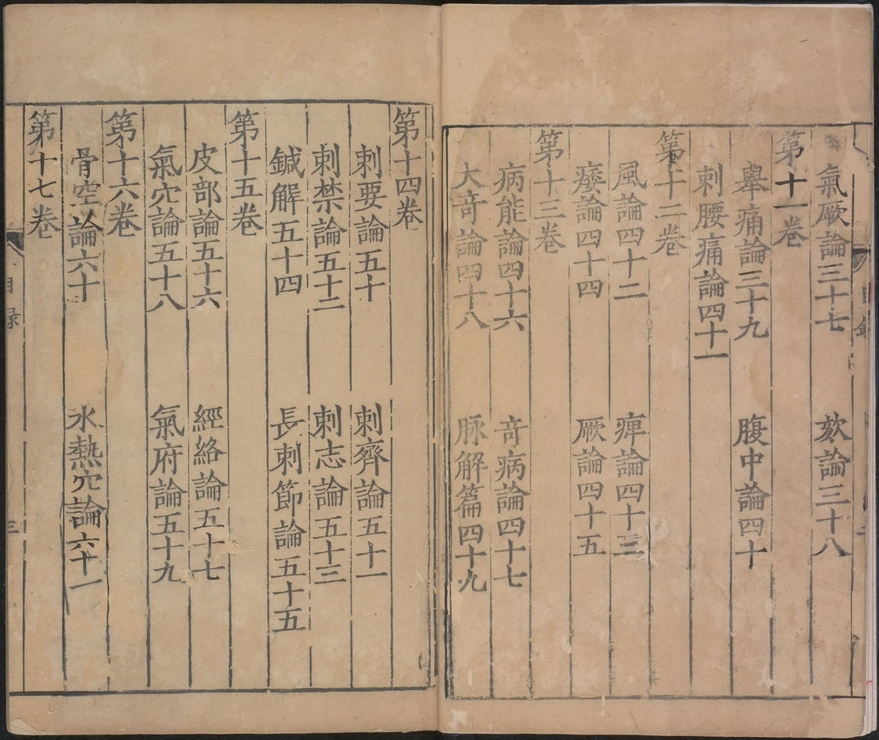 氣厥論三十七 欬論三十八
第十一卷
舉痛論三十九 腹中論四十
刺腰痛論四十一
第十二卷
風論四十二 痺論四十三
痿論四十四 厥論四十五
第十三卷
病能論四十六 竒病論四十七
大竒論四十八 脉解篇四十九
第十四卷
刺要論五十 刺齊論五十一
刺禁論五十二 刺志論五十三
鍼解五十四 長刺節論五十五
第十五卷
皮部論五十六 經絡論五十七
氣穴論五十八 氣府論五十九
第十六卷
骨空論六十 水熱穴論六十一
第十七卷
目録
三